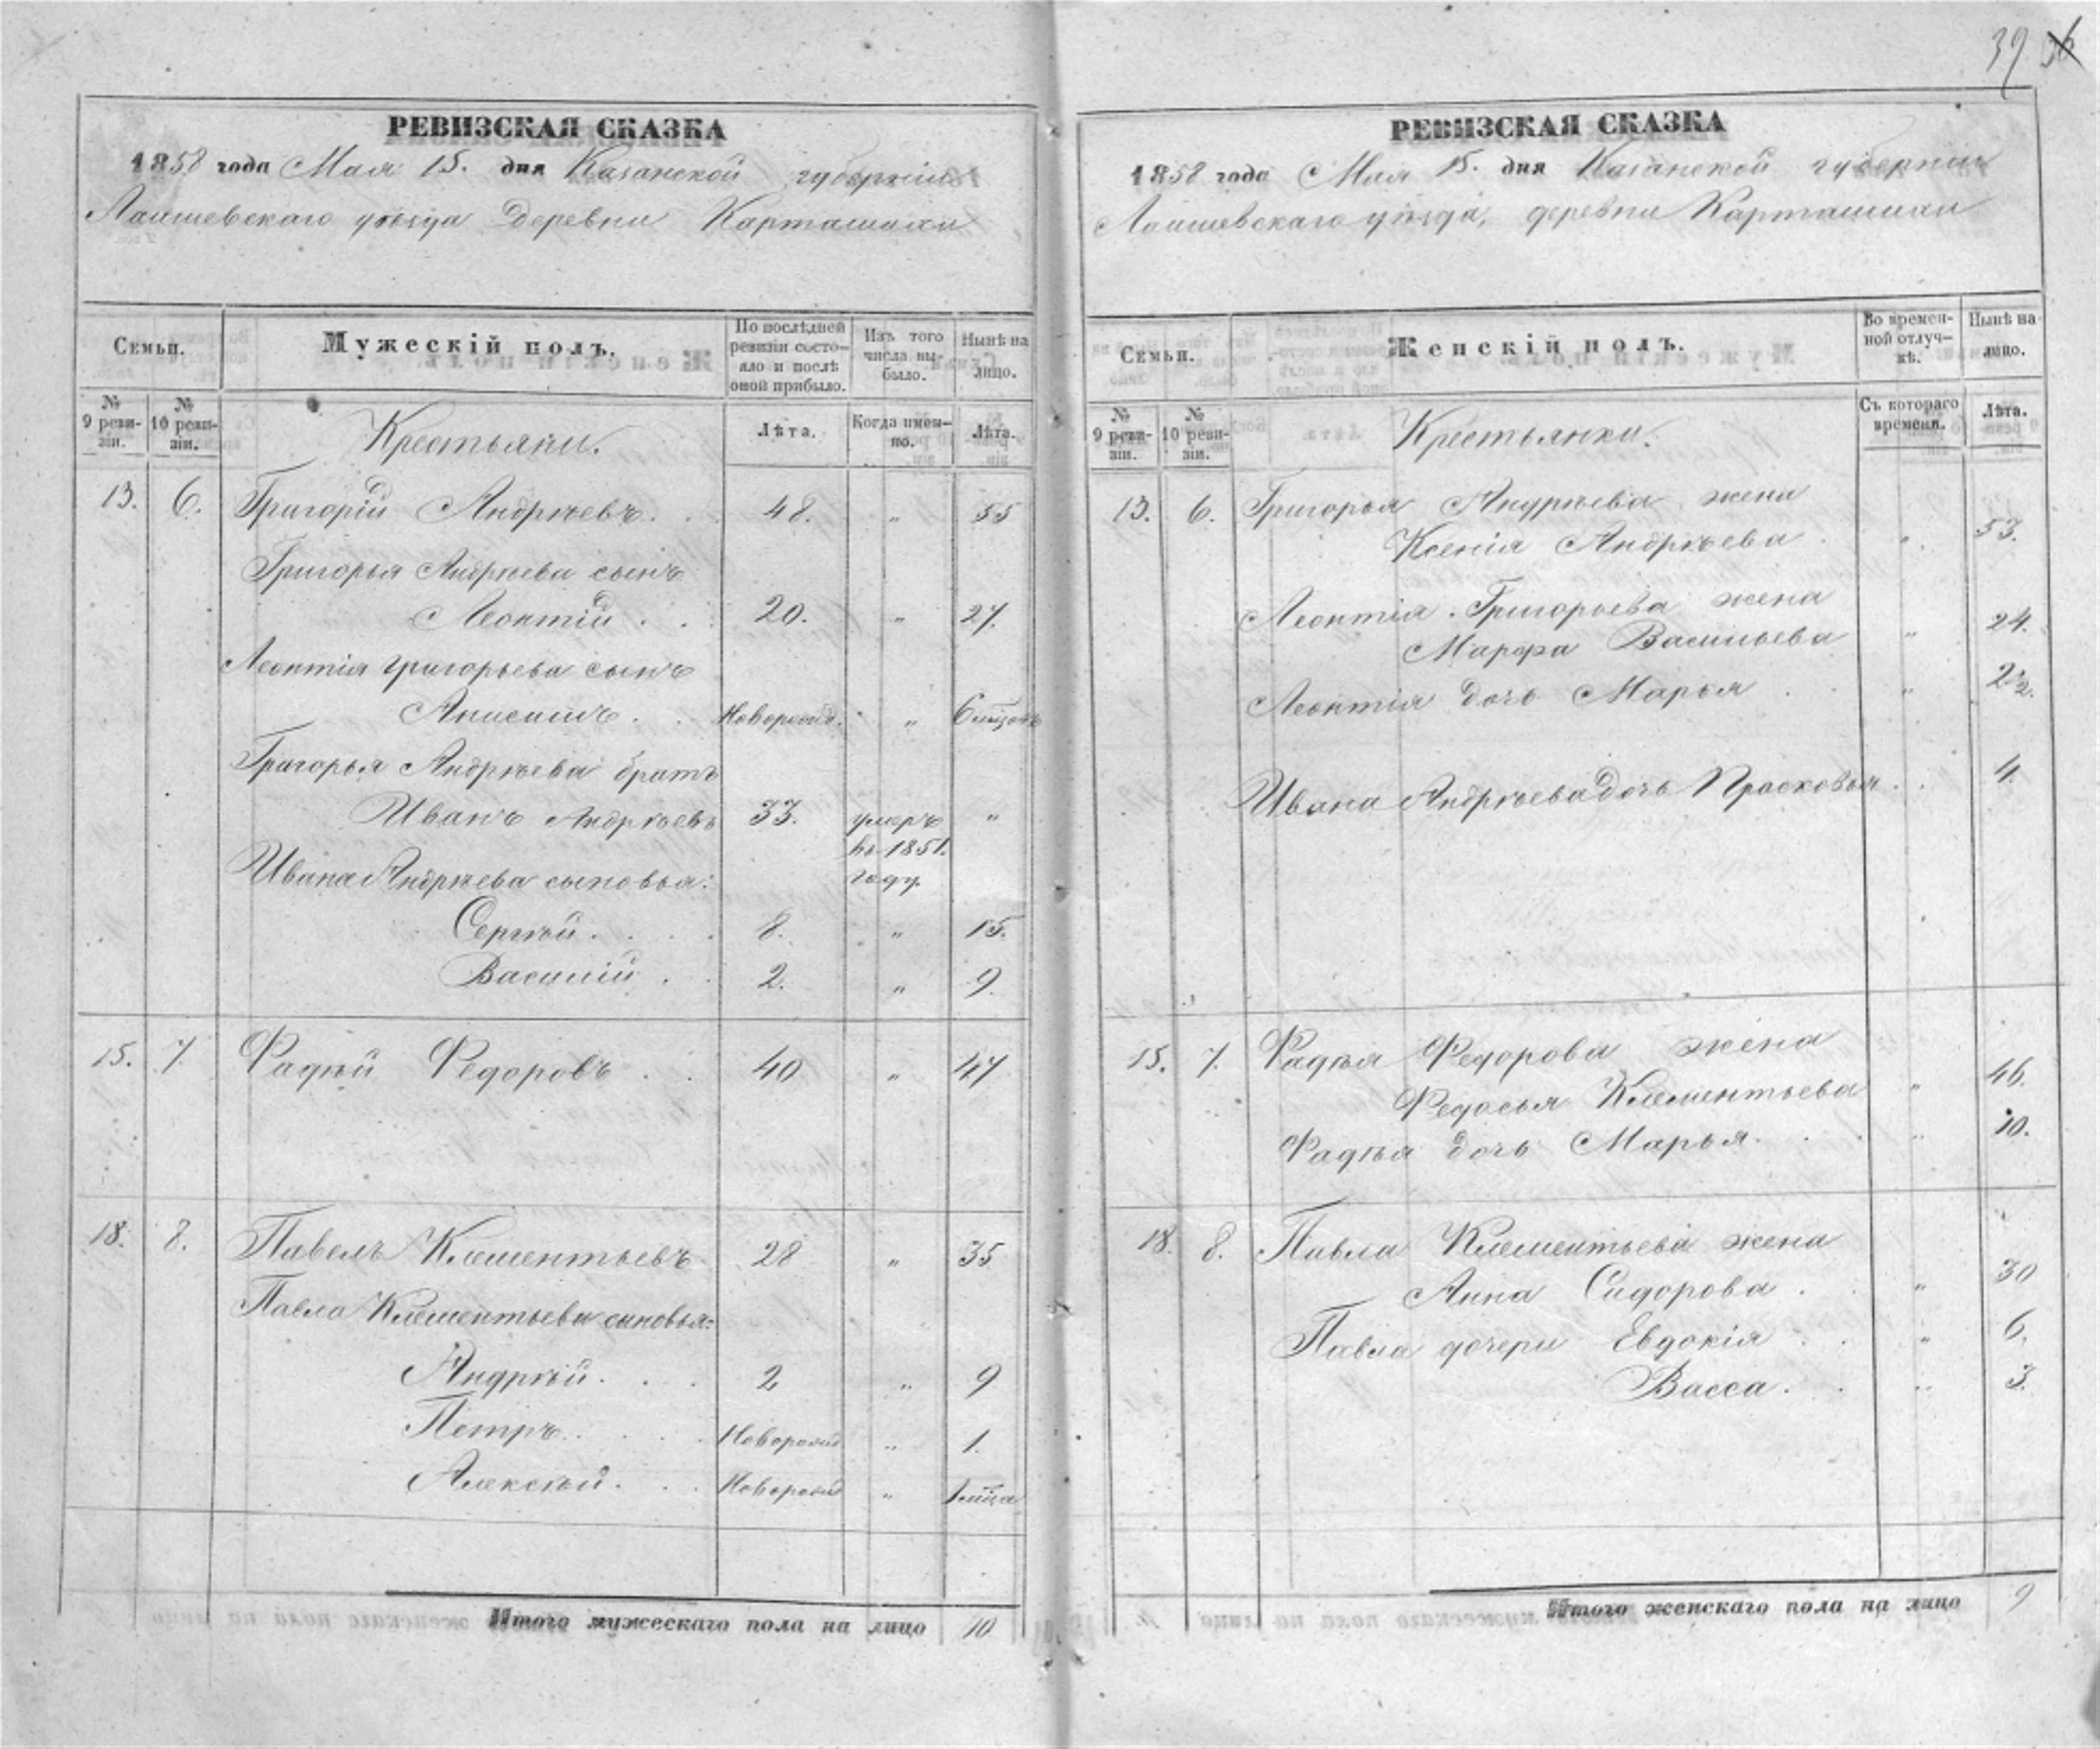 39 36
РЕВИЗСКАЯ СКАЗКА
1858 года Мая 15. дня Казанской губерніи
Лаишевскаго уѣзда Деревни Карташихи
Семьи.
Мужескій полъ.
По послѣдней ревизіи состояло и послѣ оной прибыло.
Изъ того числа выбыло.
Нынѣ на лицо.
№ 9 ревизіи.
№ 10 ревизіи.
Крестьяни.
Лѣта.
Когда именно.
Лѣта.
13. 6. Григорій Андрѣевъ . . 48. " 55
Григорья Андрѣева сынъ
Леонтій . . 20. " 27.
Леонтія Григорьева сынъ
Анисимъ . . Новорожд. " 6 мѣсцовъ
Григорья Андрѣева братъ
Иванъ Андрѣевъ 33. умеръ "
въ 1851.
Ивана Андрѣева сыновья: году.
Сергѣй . . . . 8. " 15.
Василій . . 2. " 9.
15. 7. Фадѣй Федоровъ . . 40 " 47
18. 8. Павелъ Клементьевъ 28 " 35
Павла Клементьева сыновья:
Андрѣй . . . 2 " 9
Петръ . . . . Новорожд " 1.
Алексѣй . . . Новорожд " 1 мѣсца
Итого мужескаго пола на лицо 10
РЕВИЗСКАЯ СКАЗКА
1858 года Мая 15. дня Казанской губерніи
Лаишевскаго уѣзда, деревни Карташихи
Семьи.
Женскій полъ.
Во временной отлучкѣ.
Нынѣ на лицо.
№ 9 ревизіи.
№ 10 ревизіи.
Крестьянки.
Съ котораго времени.
Лѣта.
13. 6. Григорья Андрѣева жена
Ксенія Андрѣева . " 53.
Леонтія Григорьева жена
Марфа Васильева " 24.
Леонтія дочь Марья . . " 2½.
Ивана Андрѣева дочь Прасковья . . 4.
15. 7. Фадѣя Федорова жена
Федосья Клементьева " 46.
Фадѣя дочь Марья . . . " 10.
18. 8. Павла Клементьева жена
Анна Сидорова . . " 30
Павла дочери Евдокія . . " 6.
Васса . . " 3.
Итого женскаго пола на лицо 9